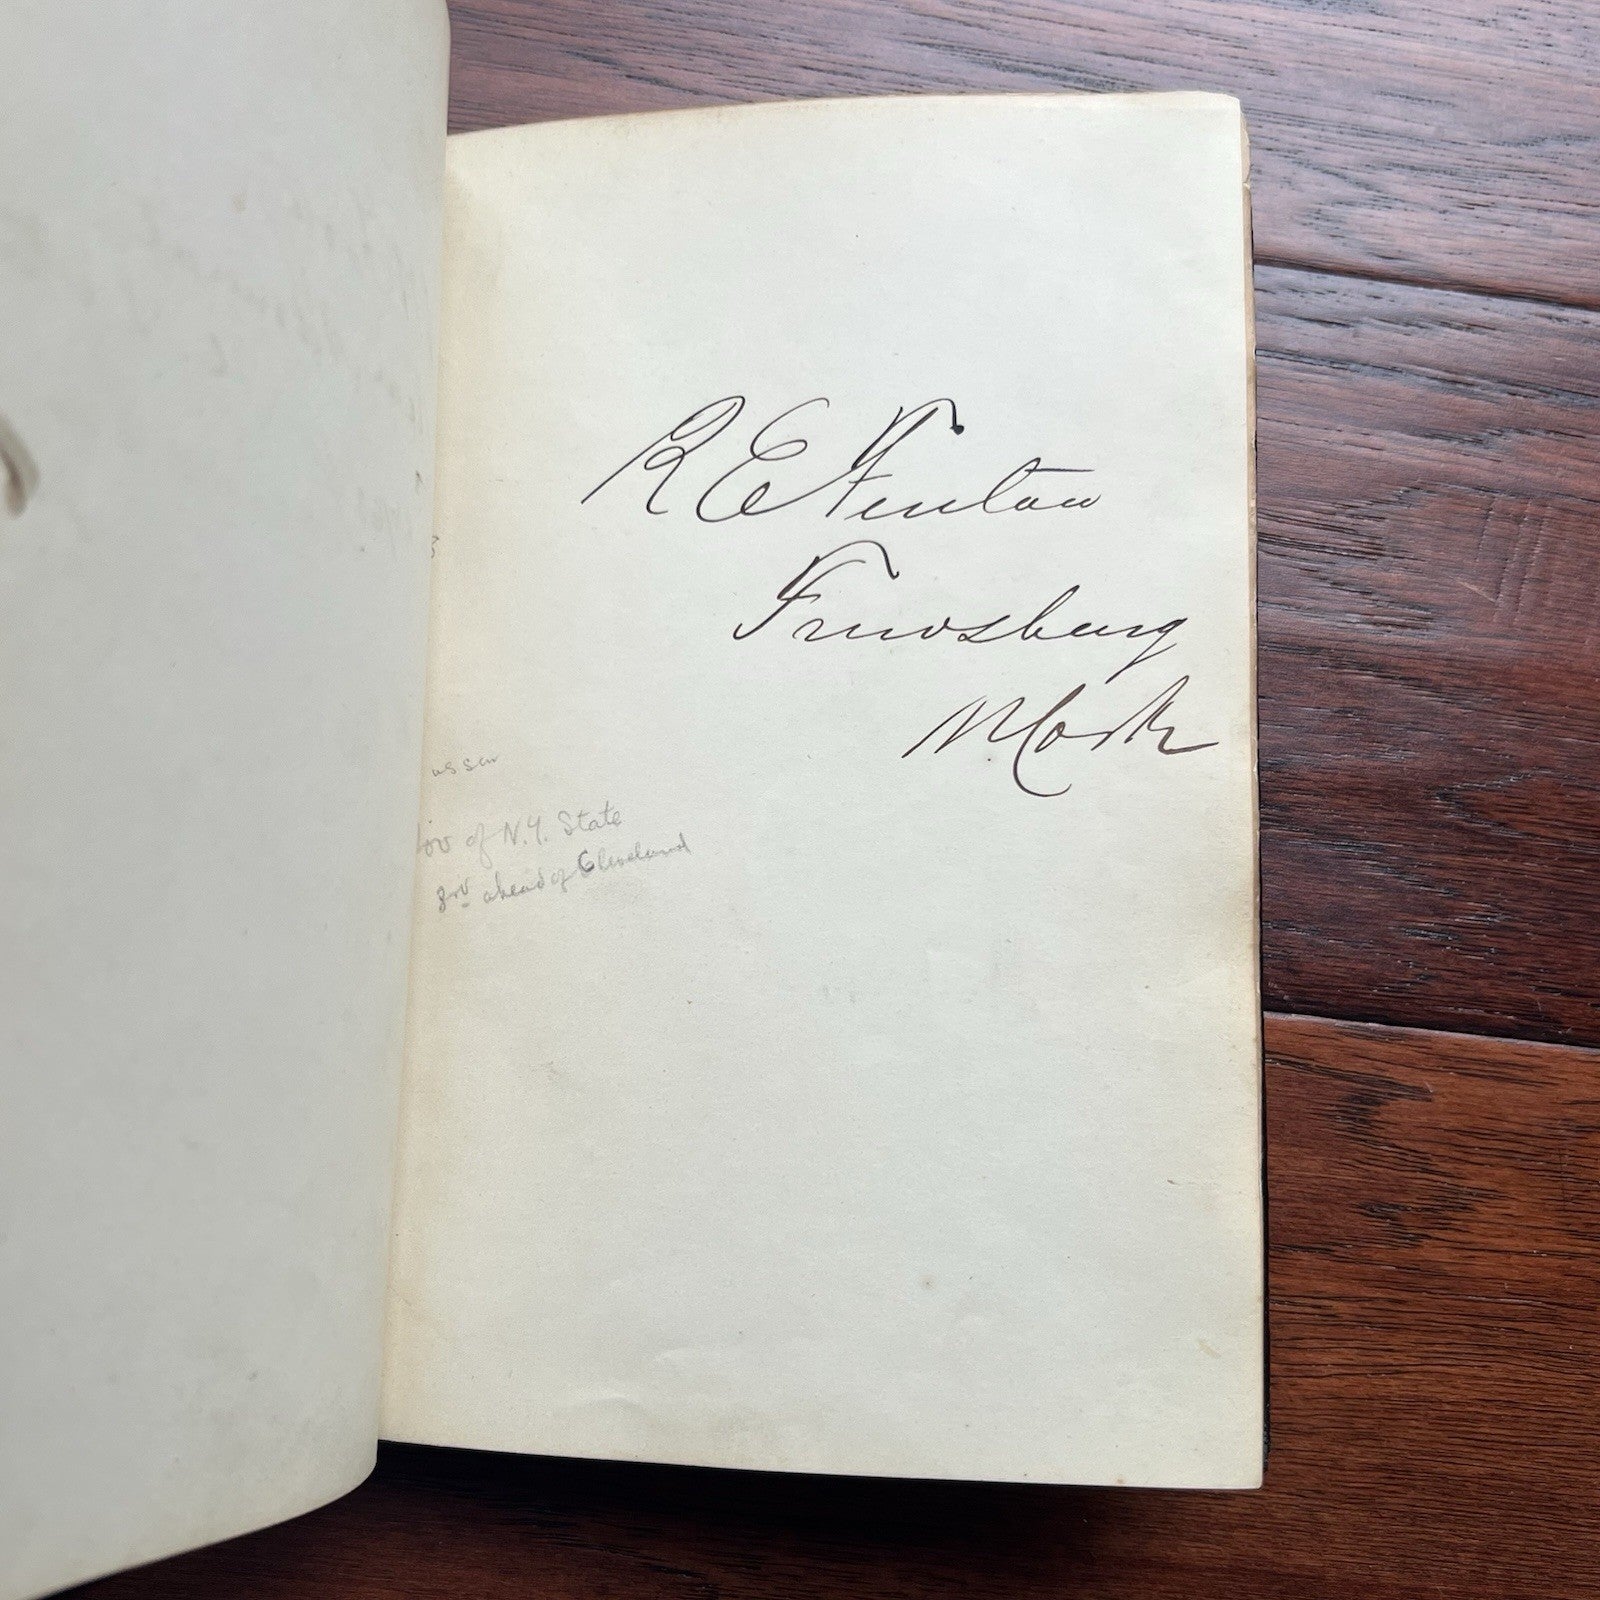 R E Fenton
Frewsburg
N York
us sen
Gov of N.Y. State
3rd ahead of Cleveland